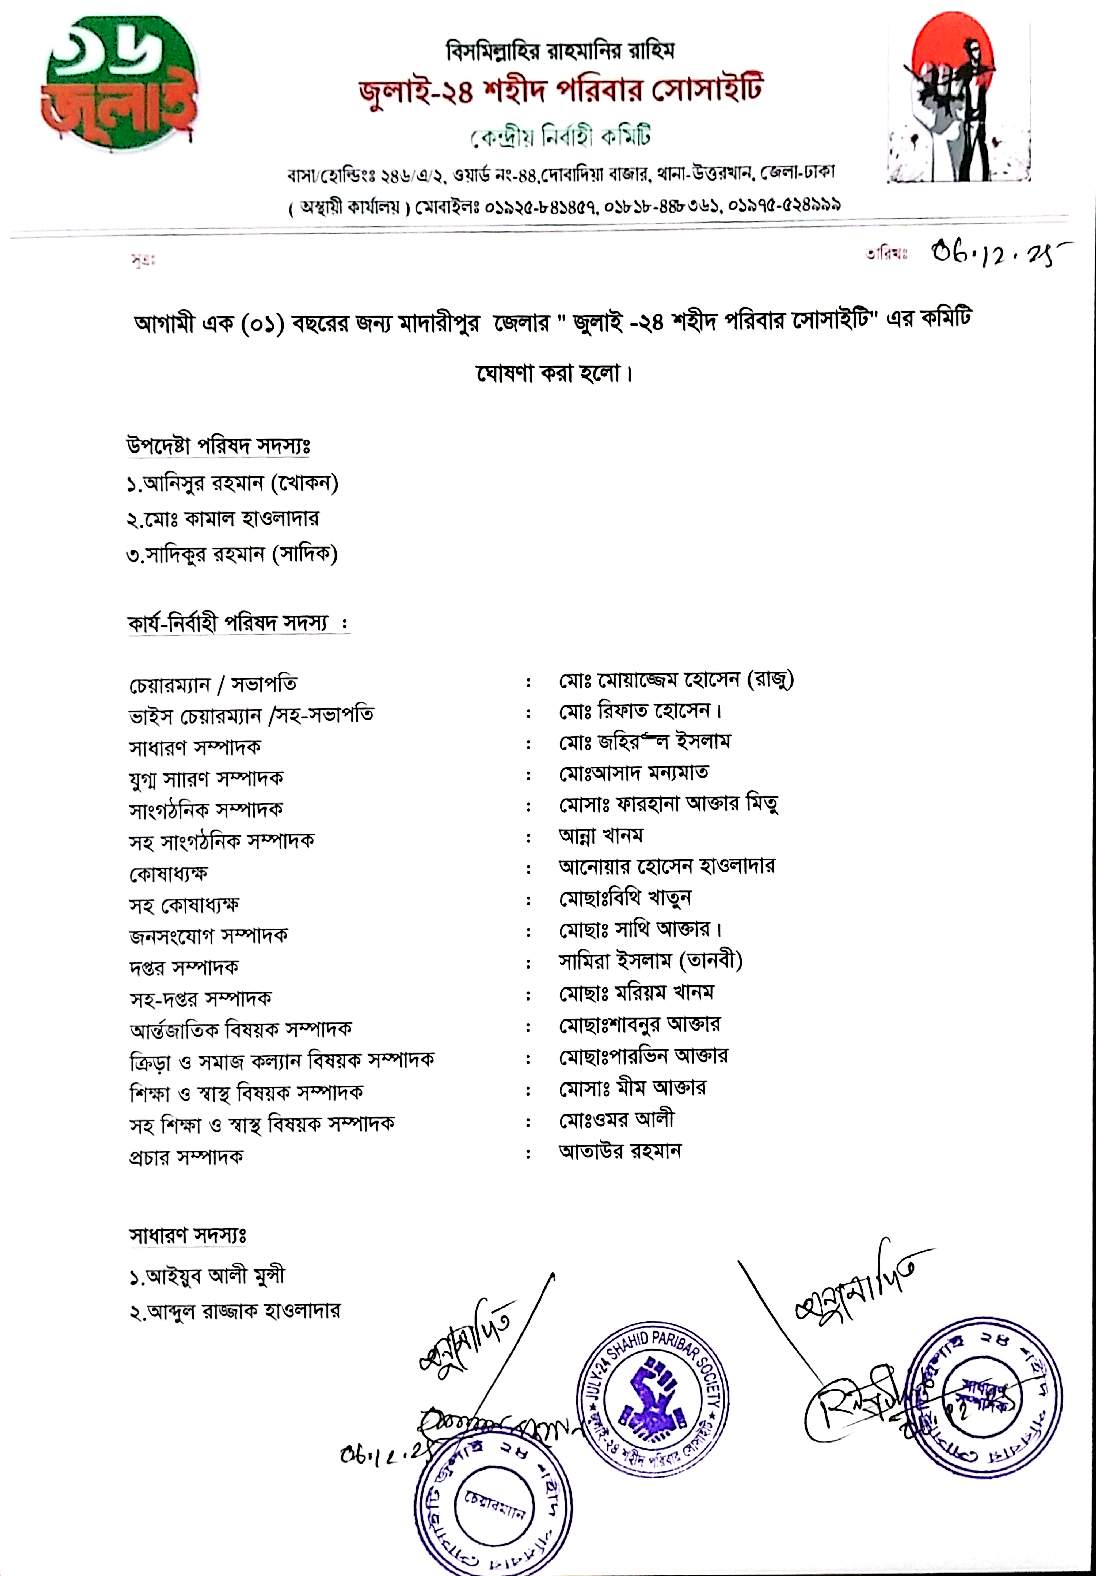 ৩৬
জুলাই
বিসমিল্লাহির রাহমানির রাহিম
জুলাই-২৪ শহীদ পরিবার সোসাইটি
কেন্দ্রীয় নির্বাহী কমিটি
বাসা/হোল্ডিংঃ ২৪৬/এ/২, ওয়ার্ড নং-৪৪,দোবাদিয়া বাজার, থানা-উত্তরখান, জেলা-ঢাকা
( অস্থায়ী কার্যালয় ) মোবাইলঃ ০১৯২৫-৮৪১৪৫৭, ০১৮১৮-৪৪৮৩৬১, ০১৯৭৫-৫২৪৯৯৯
সূত্রঃ
তারিখঃ ০৬.১২.২৫
আগামী এক (০১) বছরের জন্য মাদারীপুর জেলার " জুলাই -২৪ শহীদ পরিবার সোসাইটি" এর কমিটি
ঘোষণা করা হলো।
উপদেষ্টা পরিষদ সদস্যঃ
১.আনিসুর রহমান (খোকন)
২.মোঃ কামাল হাওলাদার
৩.সাদিকুর রহমান (সাদিক)
কার্য-নির্বাহী পরিষদ সদস্য :
চেয়ারম্যান / সভাপতি : মোঃ মোয়াজ্জেম হোসেন (রাজু)
ভাইস চেয়ারম্যান /সহ-সভাপতি : মোঃ রিফাত হোসেন।
সাধারণ সম্পাদক : মোঃ জহিরুল ইসলাম
যুগ্ম সাারণ সম্পাদক : মোঃআসাদ মন্যমাত
সাংগঠনিক সম্পাদক : মোসাঃ ফারহানা আক্তার মিতু
সহ সাংগঠনিক সম্পাদক : আন্না খানম
কোষাধ্যক্ষ : আনোয়ার হোসেন হাওলাদার
সহ কোষাধ্যক্ষ : মোছাঃবিথি খাতুন
জনসংযোগ সম্পাদক : মোছাঃ সাথি আক্তার।
দপ্তর সম্পাদক : সামিরা ইসলাম (তানবী)
সহ-দপ্তর সম্পাদক : মোছাঃ মরিয়ম খানম
আর্ন্তজাতিক বিষয়ক সম্পাদক : মোছাঃশাবনুর আক্তার
ক্রিড়া ও সমাজ কল্যান বিষয়ক সম্পাদক : মোছাঃপারভিন আক্তার
শিক্ষা ও স্বাস্থ বিষয়ক সম্পাদক : মোসাঃ মীম আক্তার
সহ শিক্ষা ও স্বাস্থ বিষয়ক সম্পাদক : মোঃওমর আলী
প্রচার সম্পাদক : আতাউর রহমান
সাধারণ সদস্যঃ
১.আইয়ুব আলী মুন্সী
২.আব্দুল রাজ্জাক হাওলাদার
অনুমোদিত
০৬.১২.২৫
জুলাই ২৪ শহীদ পরিবার সোসাইটি
চেয়ারম্যান
JULY-24 SHAHID PARIBAR SOCIETY
জুলাই-২৪ শহীদ পরিবার সোসাইটি
অনুমোদিত
জুলাই ২৪ শহীদ পরিবার সোসাইটি
সাধারণ
সম্পাদক